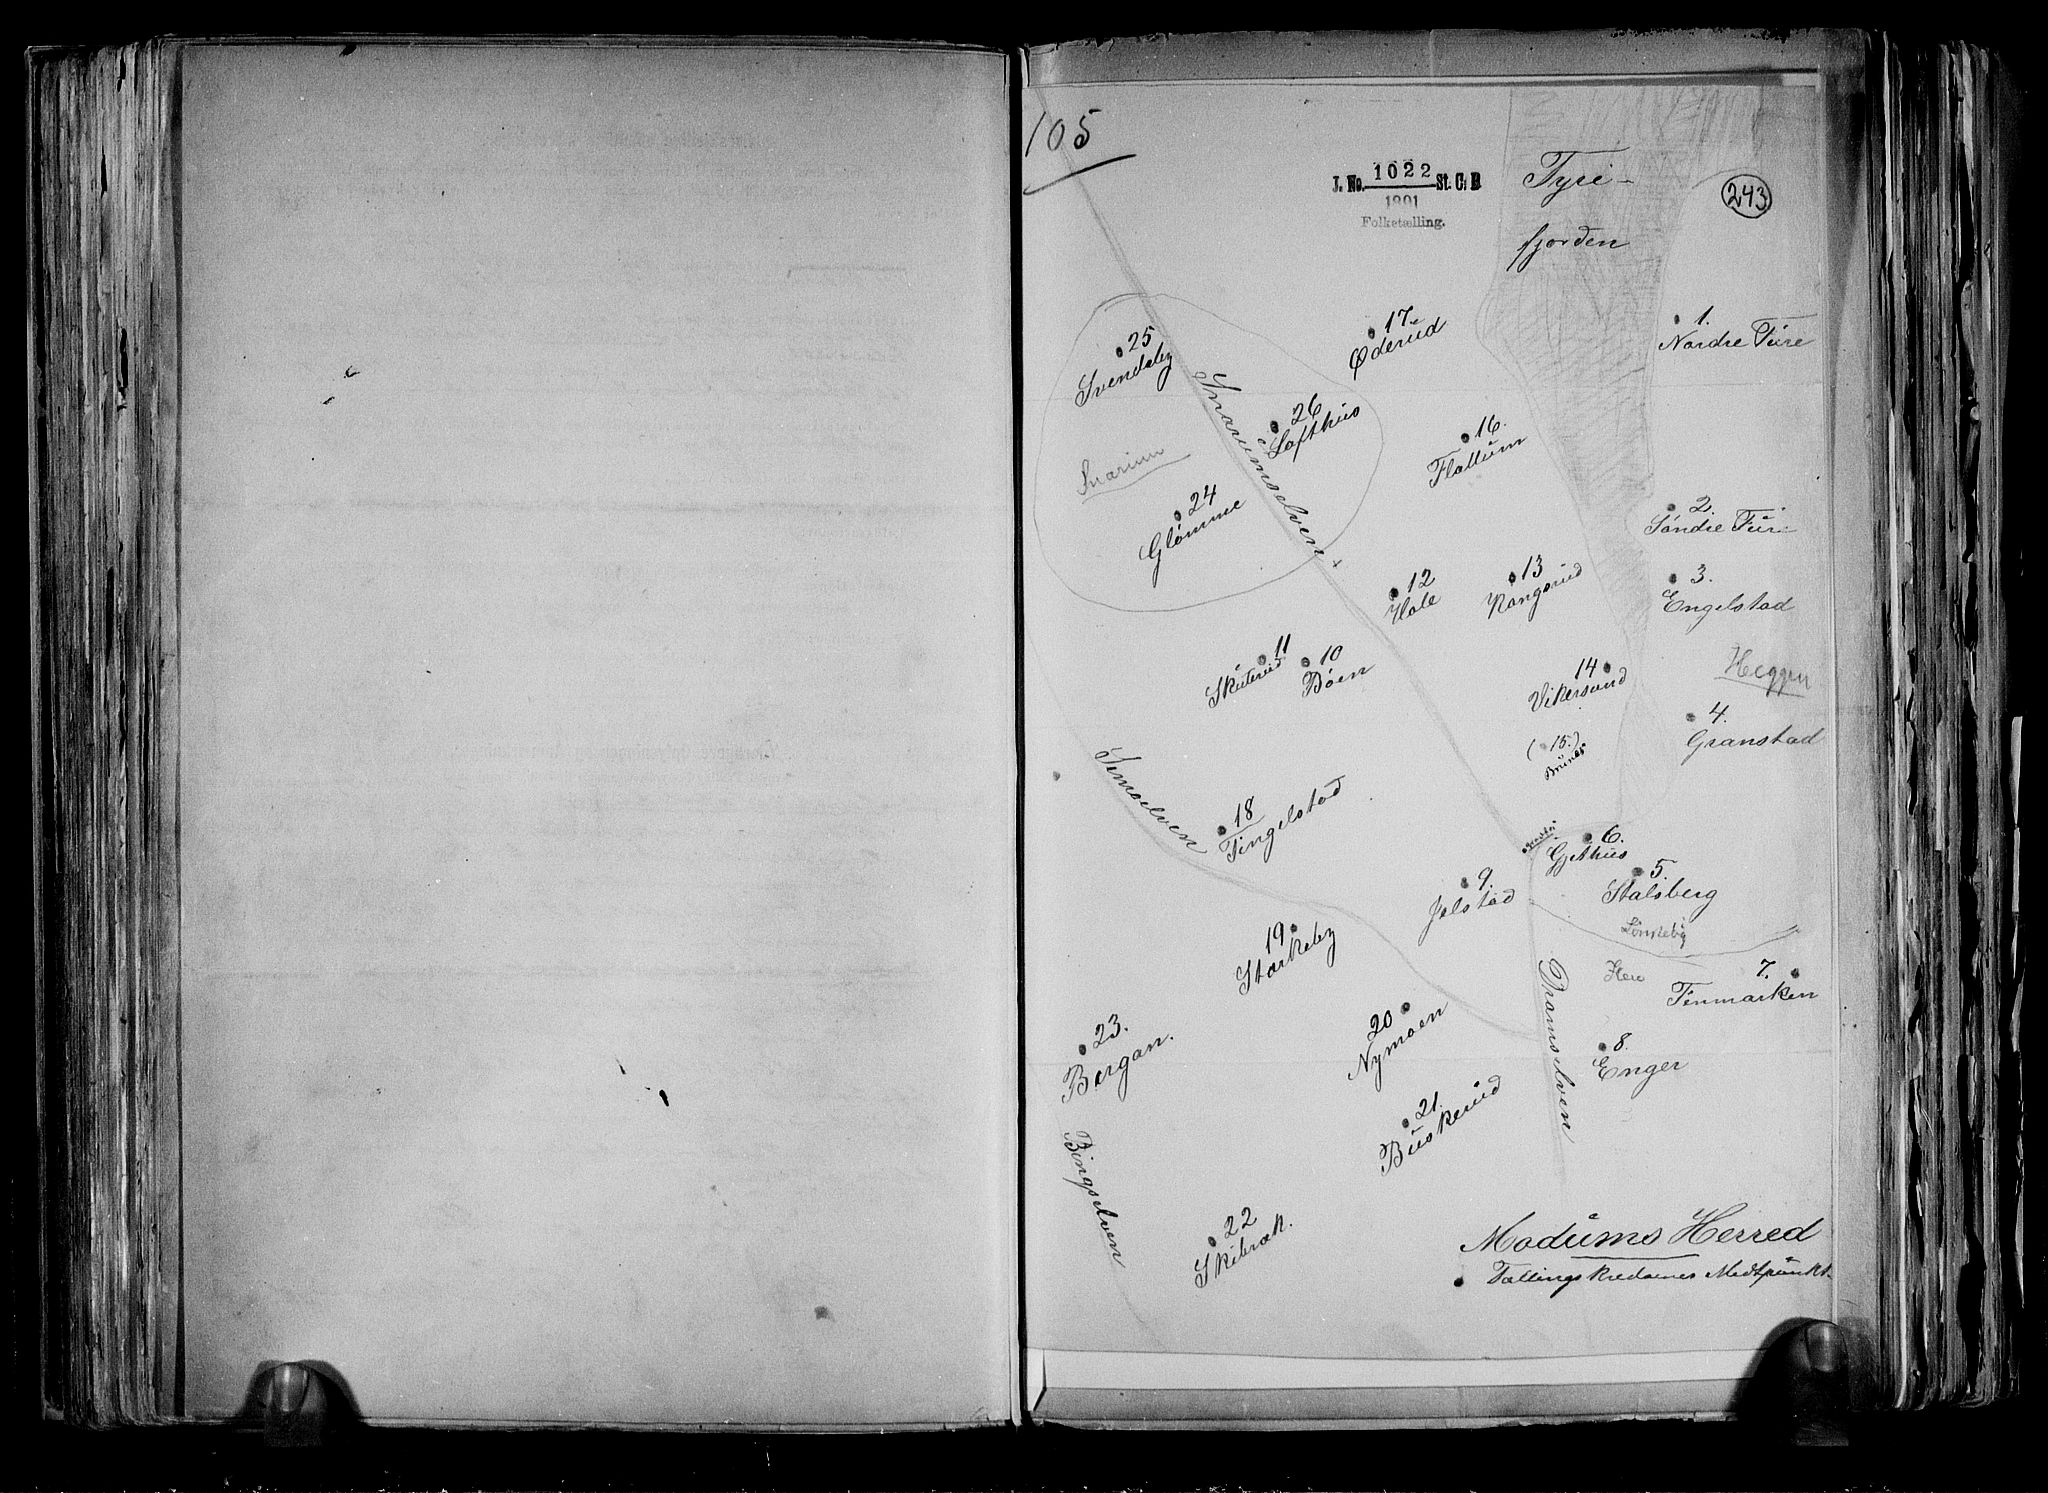 105
J. No. 1022 St. C. B
1891
Folketælling.
Tyri-
fjorden
243
25
Svendsby
17.
Øderud
1.
Nordre Fure
26
Lofthus
Snarumselven
16.
Flattum
Snarum
24
Glømme
2.
Søndre Fure
12
Hole
13
Rangsrud
3.
Engelstad
11
Skuterud
10
Bøen
14
Vikersund
Heggen
4.
Granstad
(15.)
Brunæs
Simoelven
18
Tingelstad
6.
Gjethus
5.
Stalsberg
9.
Jelstad
19
Starkeby
Here
7.
Finmarken
20
Nymoen
Dramselven
8.
Enger
23.
Bergan.
21.
Buskerud
Bingselven
22
Skibræk.
Modums Herred
Tællingskredsenes Midtpunkt.